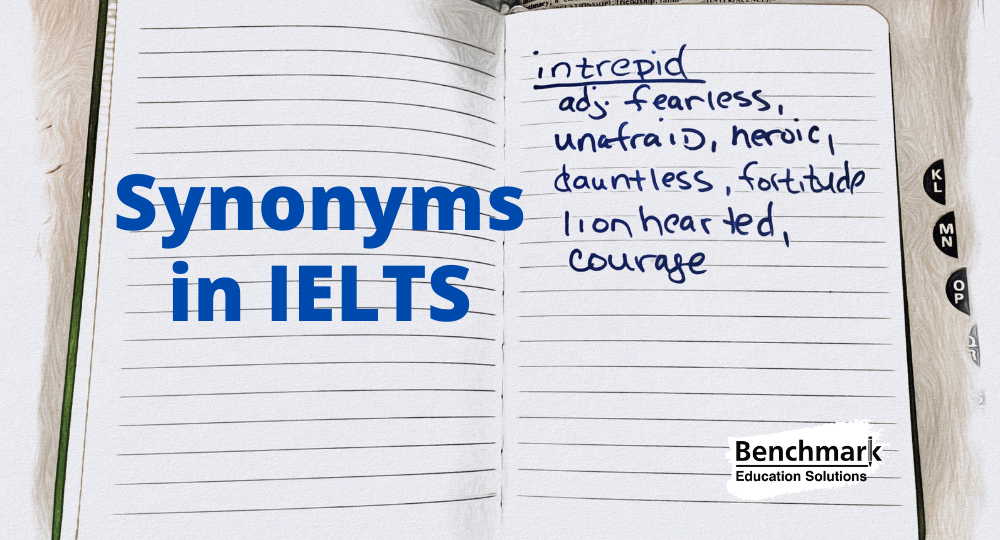 Synonyms
in IELTS
intrepid
adj. fearless,
unafraid, heroic,
dauntless, fortitude
lionhearted,
courage
K
L
M
N
O
P
Benchmark
Education Solutions